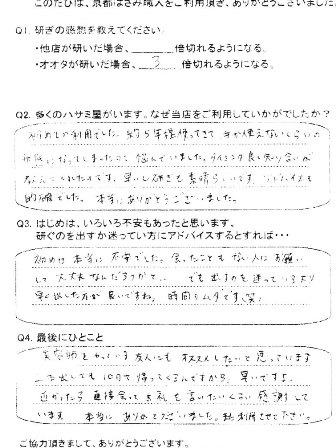 このたびは、京都はさみ職人をご利用頂き、ありがとうございました
Q1. 研ぎの感想を教えてください。
・他店が研いだ場合、 倍切れるようになる。
・オオタが研いだ場合、 3 倍切れるようになる。
Q2. 多くのハサミ屋がいます。なぜ当店をご利用していかがでしたか？
初めての利用でした。約5年
状態になってしまったので悩んでいました。タイミング良く知り合いが
教えてくれたんです。早いし研ぎも素晴らしいです
的確でした。本当にありがとうございました。
Q3. はじめは、いろいろ不安もあったと思います、
研ぐのを出すか迷っている方にアドバイスするとすれば・・・
初めは本当に不安でした。会ったこともない人にお願い
して大丈夫なんだろうかて... でも出すのを迷っているより
早く出した方が良いですね。時間のムダです、笑。
Q4. 最後にひとこと
美容師をやっている友人にもオススメしたいと思っています
出しても10日で帰ってくるんですから、早いですよ。
近かったら直接会ってお礼を言いたいくらい感謝して
います 本当にありがとうございました。又利用させて下さい。
ご協力頂きまして、ありがとうございます。